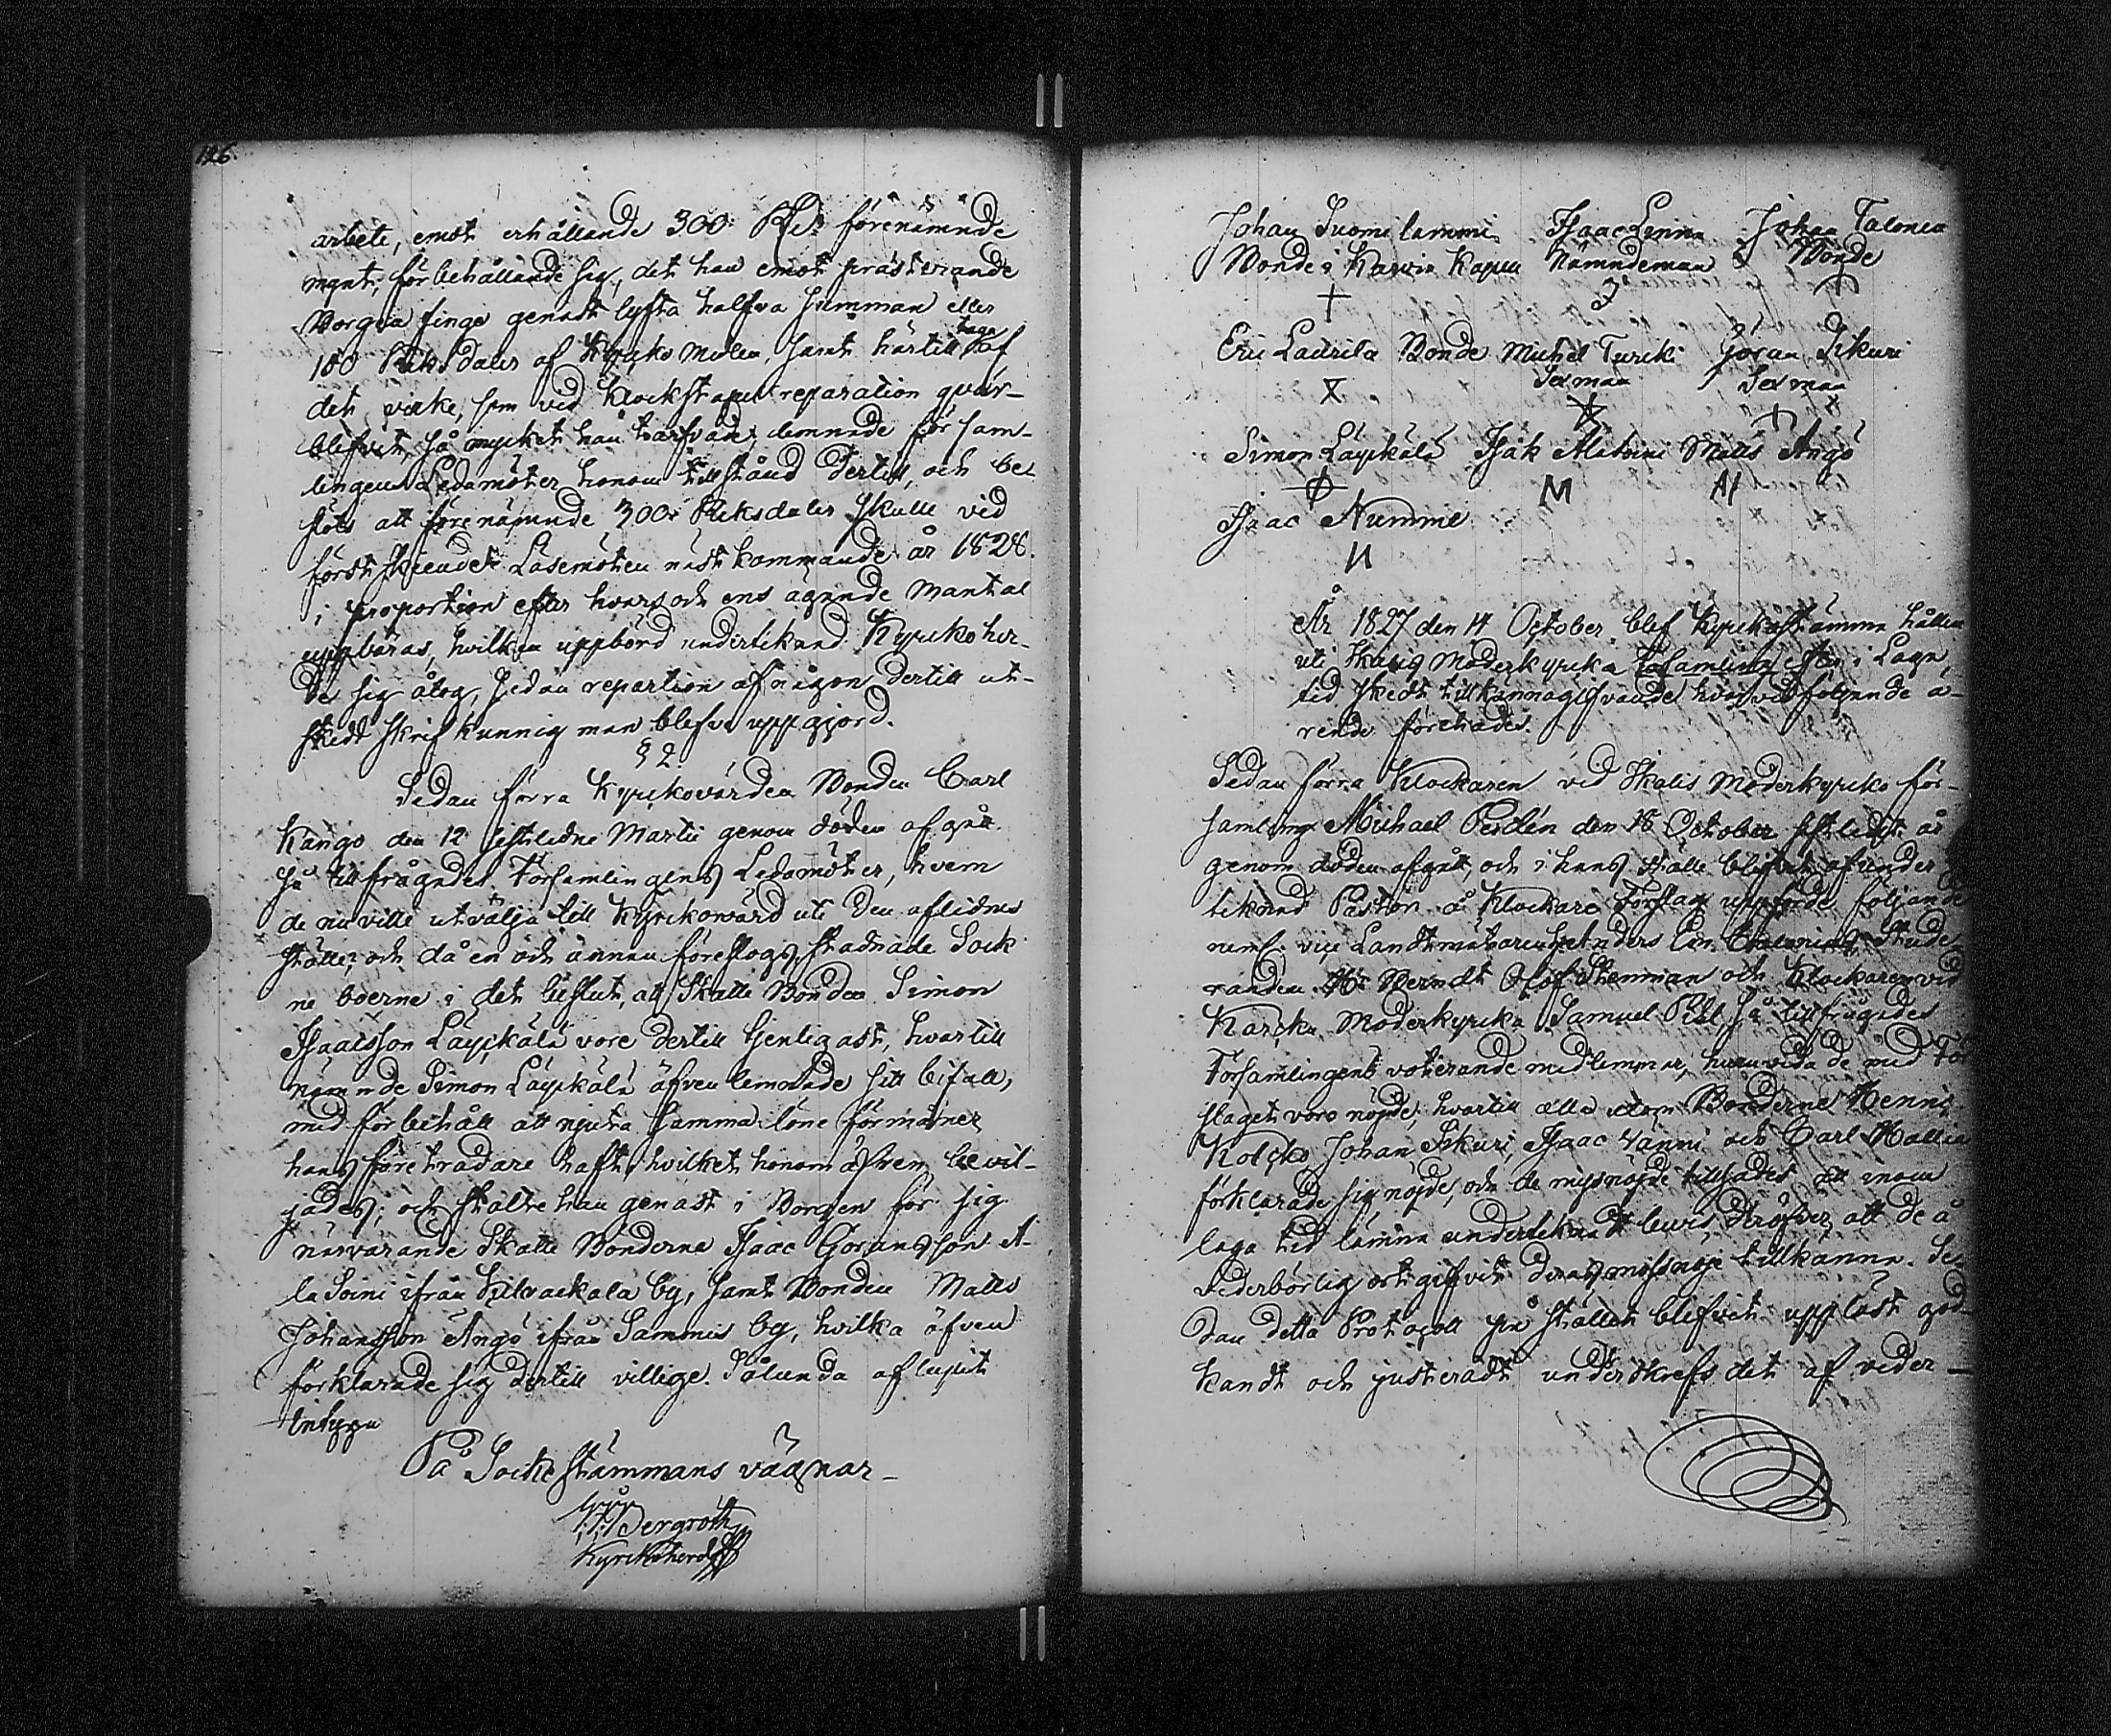 126.
arbete, emot erhållande 300 Rd förenämnde
mynt; förbehållande sig, det han emot presterande
Borgen finge genast lyfta halfva summan eller
150 Riksdaler af Kyrko medlen, samt härtill taga af
det virke, som vid Klockstapel reparation qvar-
blefvit, så mycket han tarfvade; lemnade församl-
lingens Ledamöter honom tillstånd dertill, och be-
slöts att förenämnde 300 Riksdaler skulle vid
först skeende Läsemöten nästkommande år 1828.
i proportion efter hvars och ens ägande Mantal
uppbäras, hvilken uppbörd underteknad Kyrkoher-
de sig åtog, sedan repartion af någon dertill ut-
skedt skrifkunnig man blefve uppgjord.
§ 2
Sedan förra Kyrkovärden Bonden Carl
Kangö den 12 sistledne Martii genom döden afgått.
så tillfrågades Församlingens Ledamöter, hvem
de nu ville utvälja till Kyrkovärd uti den aflidnes
ställe; och då en och annan föreslogs, stadnade Sock
ne boerne i det beslut, att Skatte Bonden Simon
Isaacsson Läykälä vore dertill tjenligast, hvartill
nämnde Simon Läykälä äfven lemnade sitt bifall,
med förbehåll att njuta samma löne förmåner
hans företrädare haft, hvilket honom äfven bevil-
jades; och stälte han genast i Borgen för sig
närvarande Skatte Bönderne Isaac Göransson A-
la Soini ifrån Kilvackala by, samt Bonden Matts
Johansson Ängö ifrån Sammis by, hvilka äfven
förklarade sig dertill villige. Sålunda aflupit
intyga
På Sockestämmans vägnar
Bergroth
Kyrkoherde
Johan Suomilammi Isaac Linna Johan Talonen
Bonde i Karvia Kapell Nämndeman Bonde
Eric Laurila Bonde Michel Turicki Göran Sikuri
Sexman Sexman
Simon Läykälä Isak Alasoini Matts Ängö
M
Isaac Numme
N
År 1827 den 14 October blef Kyrkostämma hållen
uti Ikalis Moderkyrka församling efter i Laga
tid skedt tillkännagifvande hvarvid följande ä-
rende förehades.
Sedan förra Klockaren vid Ikalis Moderkyrko för-
samling Michael Perlén den 18 October sistledit år
genom döden afgått, och i hans ställe blifvit af under
teknad Pastor å Klockare Förslag uppförde följande
neml. vice Landtmätaren Stude-
randen Hr Berndt Olof Stenman och Klockaren vid
Karcku Moderkyrka Samuel Pihl, så tillfrågades
Församlingens voterande medlemmar, huruvida de med För
slaget voro nöjde; hvartill alla utom Bönderne Henric
Kolcko Johan Sikuri, Isaac Vänni och Carl Hallia
förklarade sig nöjde, och de missnöjde tillsades att inom
laga tid lämna undertecknad bevis, deröfver, att de å
vederbörlig ort gifvit deras missnöje tillkänna. Se-
dan detta Protocoll på stället blefvit uppläst god-
kändt och justeradt underskrefs det af veder-